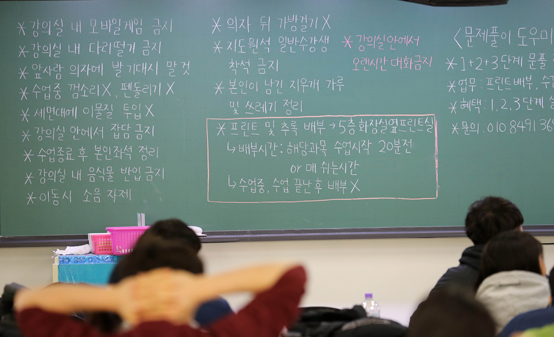 * 강의실 내 모바일게임 금지
* 강의실 내 다리떨기 금지
* 앞사람 의자에 발 기대시 말 것
* 수업중 껌소리X 펜돌리기X
* 세면대에 이물질 투입X
* 강의실 안에서 잡담 금지
* 수업종료 후 본인좌석 정리
* 강의실 내 음식물 반입 금지
* 이동시 소음 자제
* 의자 뒤 가방걸기X
* 지도원석 일반수강생
착석 금지
* 본인이 남긴 지우개 가루
및 쓰레기 정리
* 강의실안에서
오랜시간 대화금지
* 프린트 및 추록 배부 → 5층 화장실옆 프린트실
↳ 배부시간: 해당과목 수업시작 20분전
or 매 쉬는시간
↳ 수업중, 수업 끝난 후 배부X
<문제풀이 도우미
* 1+2+3단계 문풀
* 업무: 프린트배부, 수
* 혜택: 1,2,3단계
* 문의: 010 8491 36